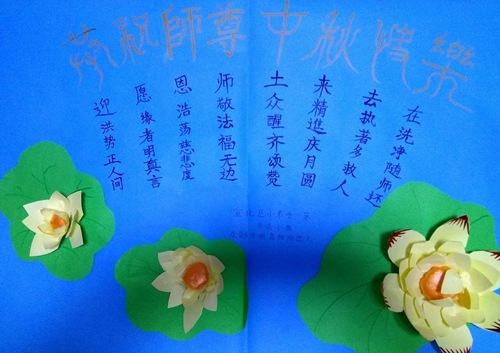 恭祝師尊中秋快樂
在洗净随师还
去执著多救人
来精進庆月圆
土众醒齐颂赞
师敬法福无边
恩浩荡慈悲度
愿缘者明真言
迎洪势正人间